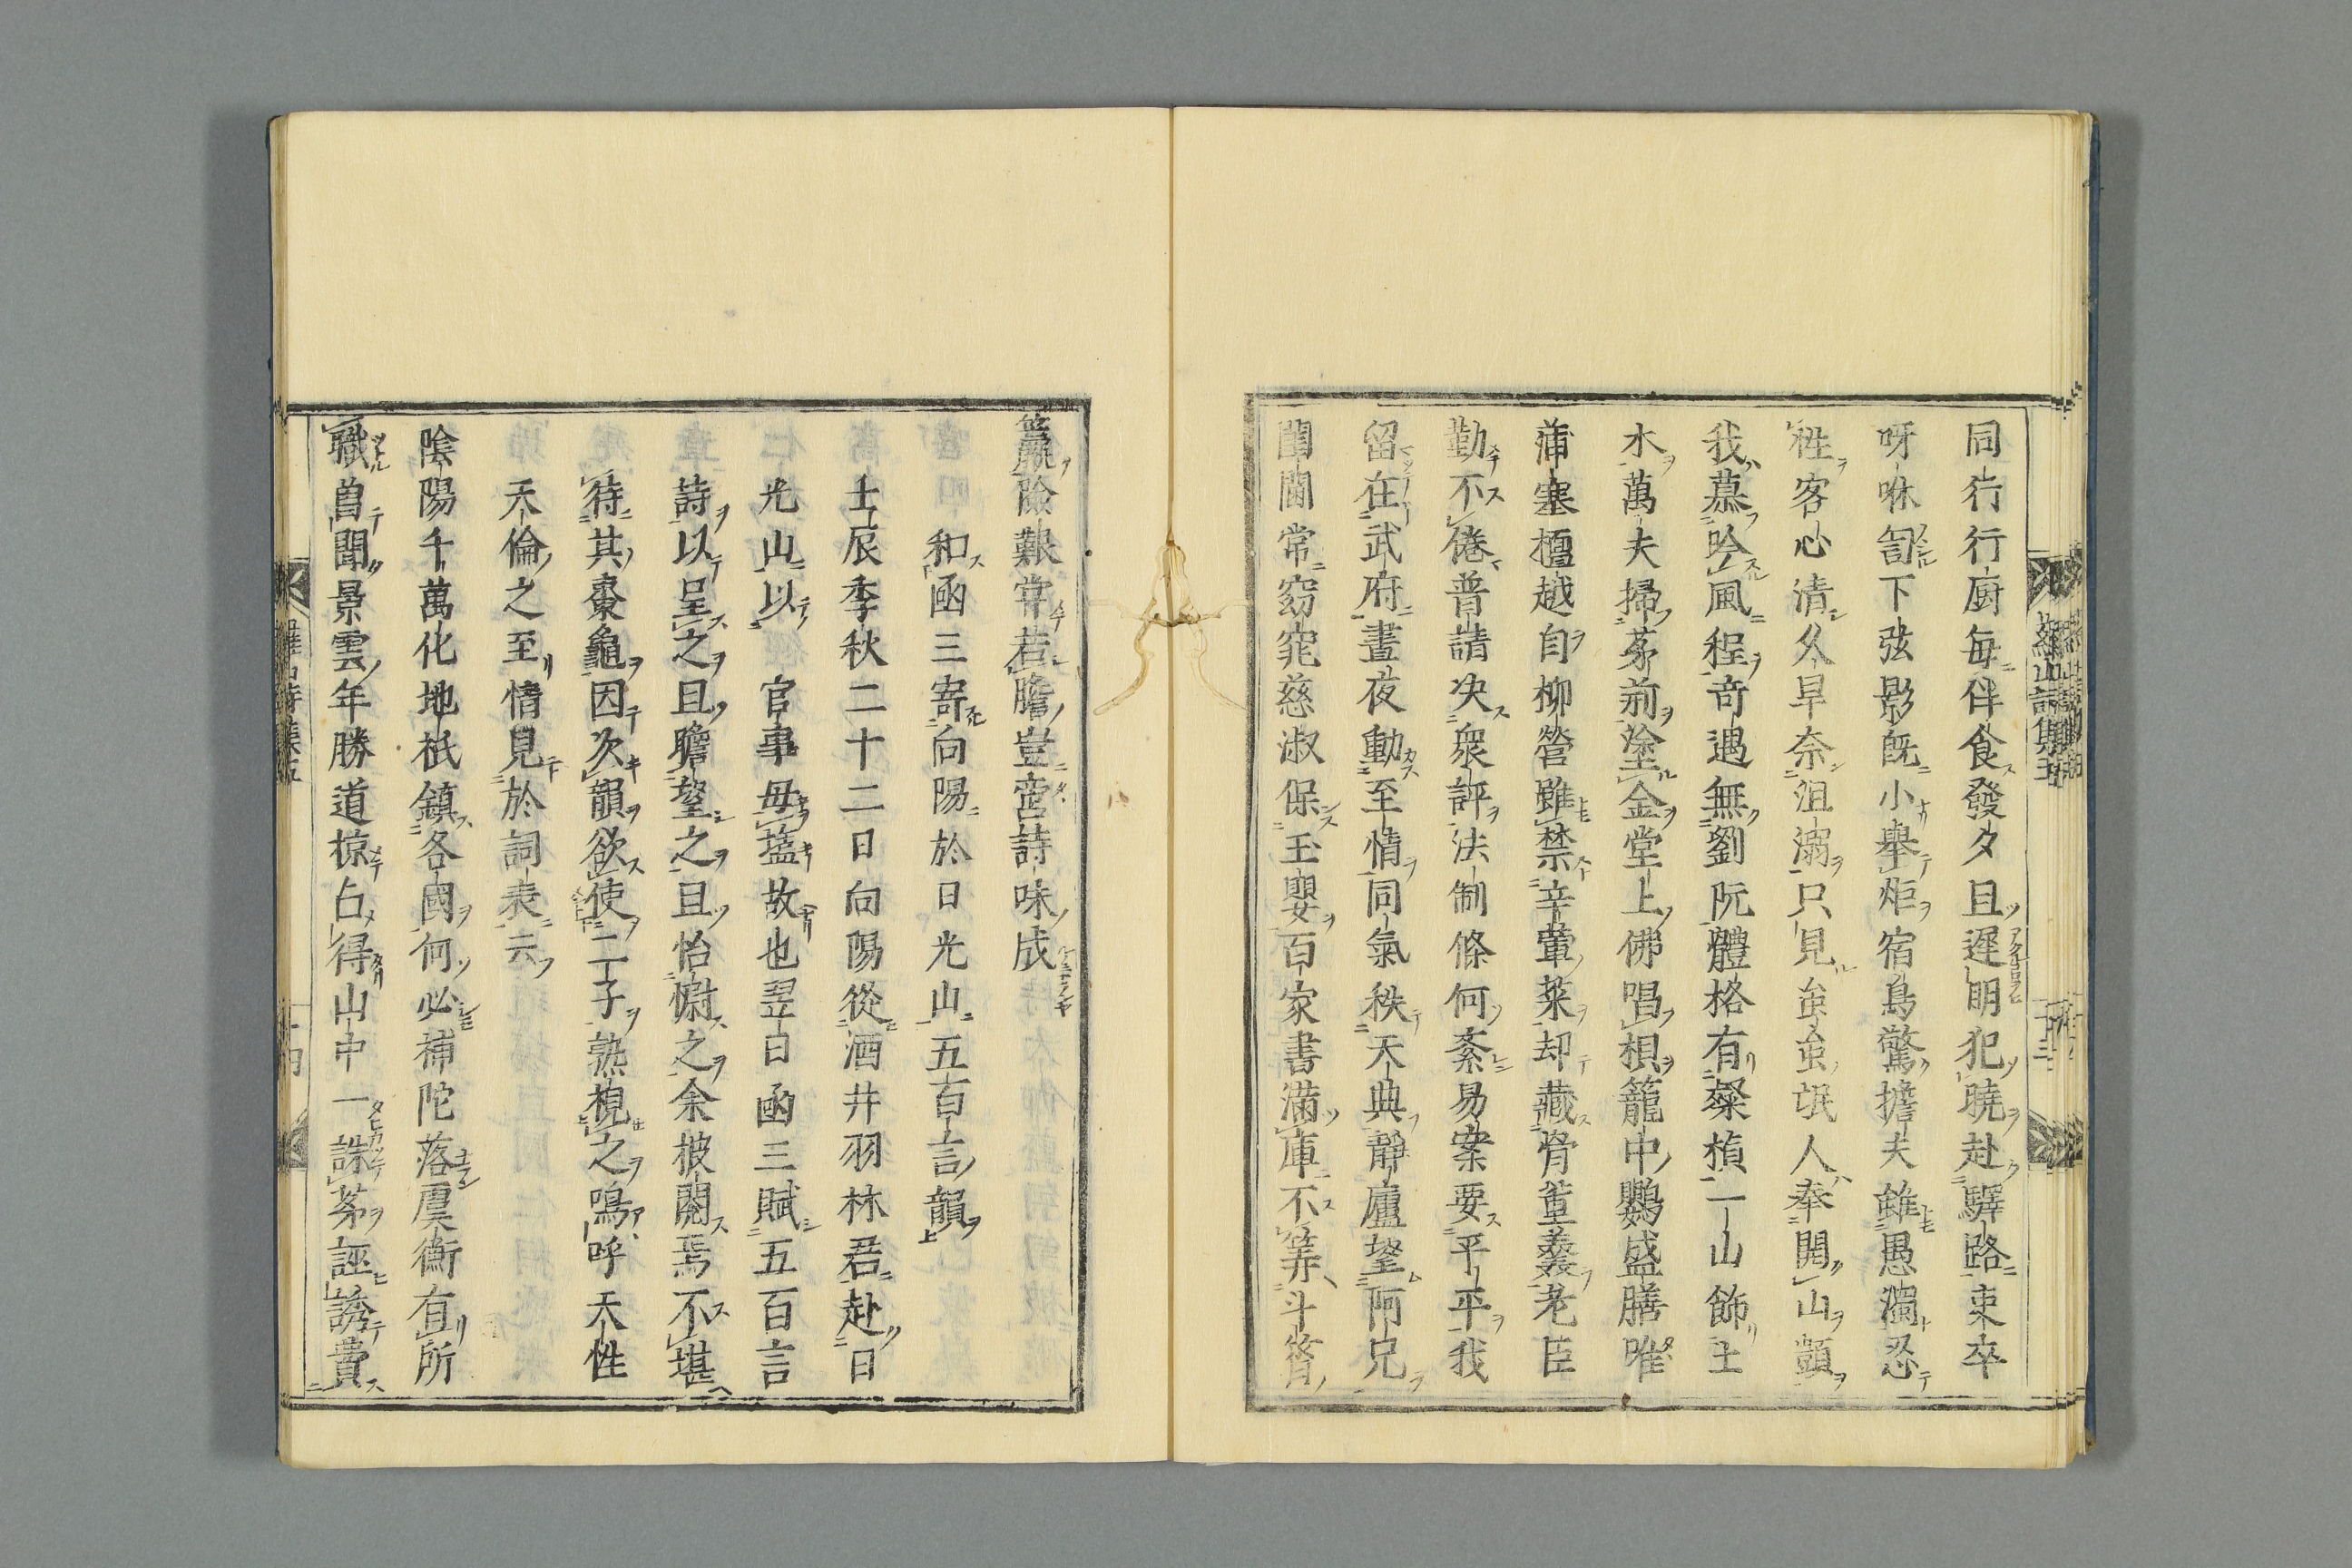 同行行廚毎伴食發夕且遲明犯曉赴驛路吏卒
呀咻訇下弦影既小擧炬宿鳥驚擔夫雖愚濁忍
性客心清久早奈沮溺只見蚩蚩氓人奉開山顗
我慕吟風程奇遇無劉阮體格有粲楨一山飾土
木萬夫掃茅荊塗金堂上佛唱梖籠中鸚盛膳唯
蒲塞檀越自柳營雖禁辛葷菜却藏骨董羹老臣
勤不倦普請决衆評法制條何紊易案要平平我
留在武府晝夜動至情同氣秩天典靜廬望阿兄
閨閫常窈窕慈淑保玉嬰百家書滿庫不筭斗筲
羸險艱常若膽豈啻詩味成
和函三寄向陽於日光山五百言韻
壬辰季秋二十二日向陽從酒井羽林君赴日
光山以 官事毋盬故也翌日函三賦五百言
詩以呈之且瞻望之且怡慰之余披閱焉不堪
待其棗龜因次韻欲使二子熟視之嗚呼天性
天倫之至情見於詞表云
陰陽千萬化地祇鎮各國何必補陀落虞衡有所
職首聞景雲年勝道掠占得山中一誅茅誣誘費
羅山詩集五